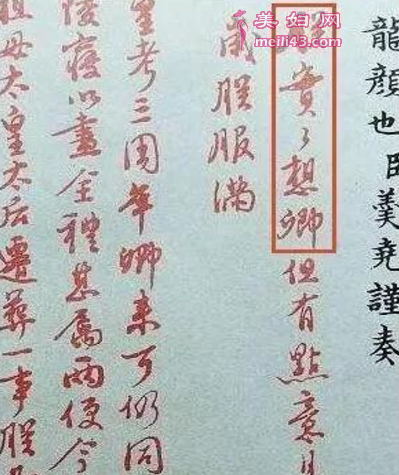 美妇网
meili43.com
龍顏也臣羹堯謹奏
實々想卿但有點意
朕服滿
皇考三周年卿来可仍同
陵寢以盡全禮甚屬兩便今
祖母太皇太后遷葬一事朕